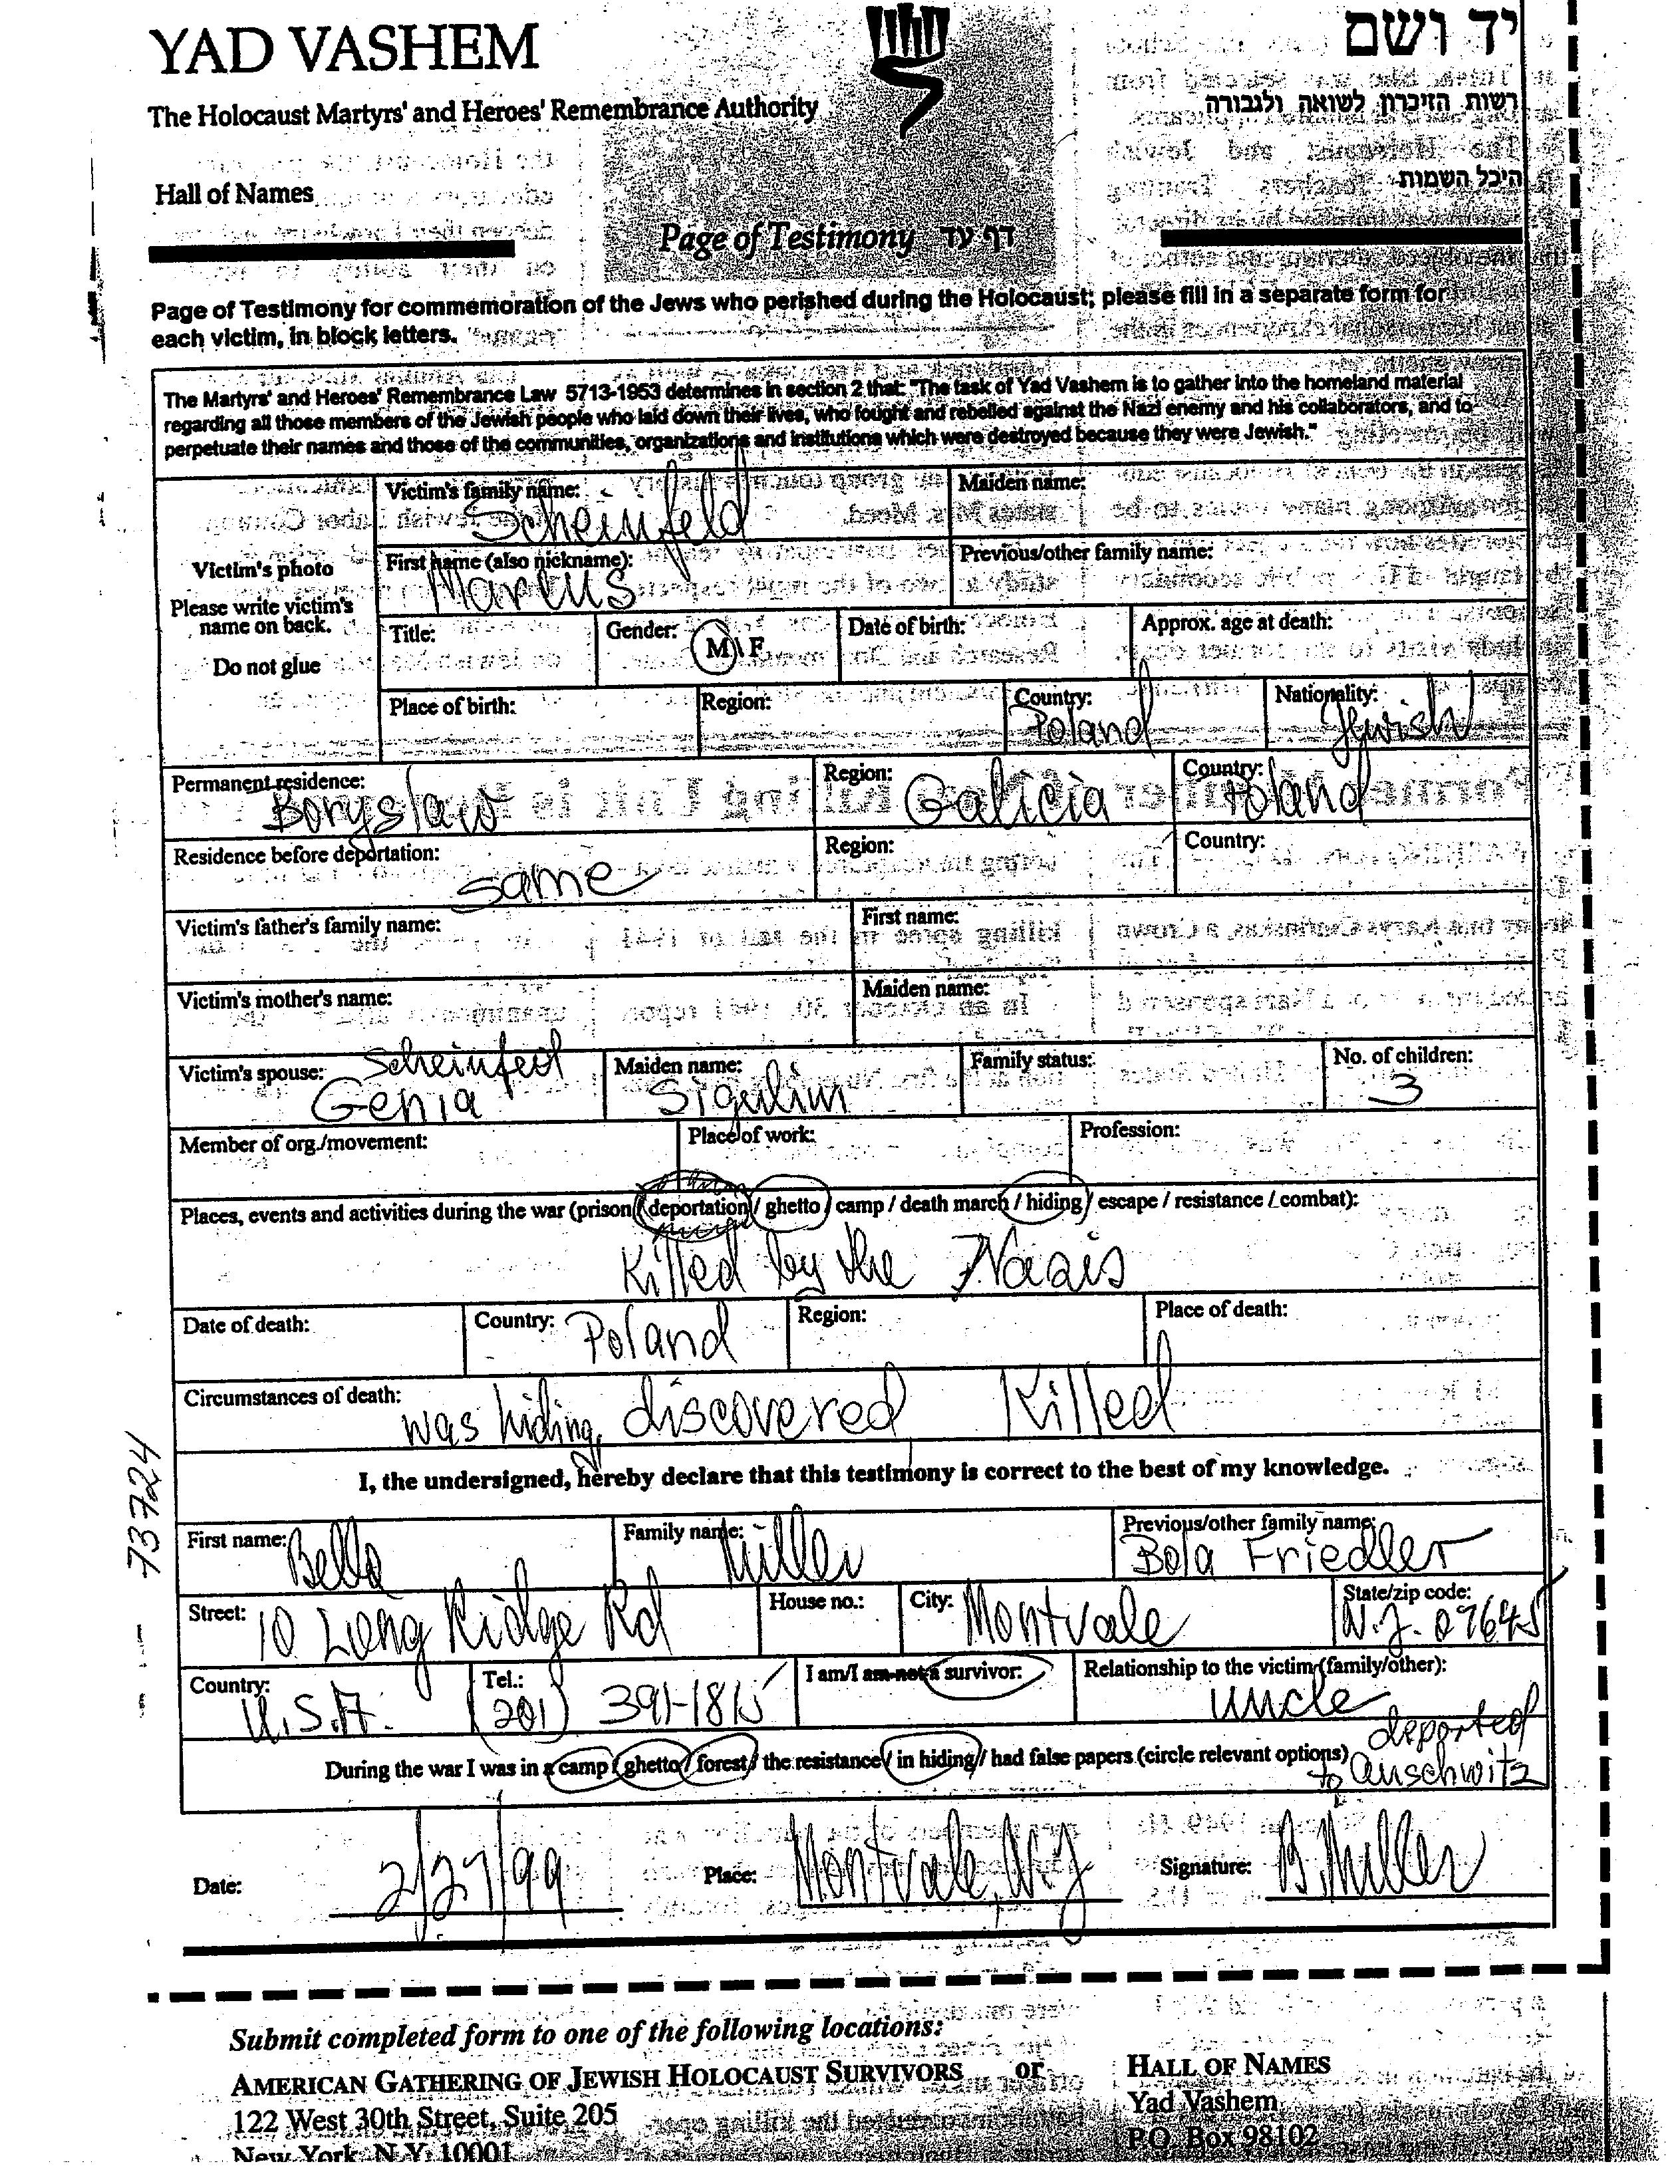 YAD VASHEM
יד ושם
The Holocaust Martyrs' and Heroes' Remembrance Authority
רשות הזיכרון לשואה ולגבורה
Hall of Names
היכל השמות
Page of Testimony דף עד
Page of Testimony for commemoration of the Jews who perished during the Holocaust; please fill in a separate form for
each victim, in block letters.
The Martyrs' and Heroes' Remembrance Law 5713-1953 determines in section 2 that: "The task of Yad Vashem is to gather into the homeland material
regarding all those members of the Jewish people who laid down their lives, who fought and rebelled against the Nazi enemy and his collaborators, and to
perpetuate their names and those of the communities, organizations and institutions which were destroyed because they were Jewish."
Victim's photo
Please write victim's
name on back.
Do not glue
Victim's family name: Scheinfeld Maiden name:
First name (also nickname): Marcus Previous/other family name:
Title: Gender: M \ F Date of birth: Approx. age at death:
Place of birth: Region: Country: Poland Nationality: Jewish
Permanent residence: Boryslaw Region: Galicia Country: Poland
Residence before deportation: same Region: Country:
Victim's father's family name: First name:
Victim's mother's name: Maiden name:
Victim's spouse: Scheinfeld Genia Maiden name: Sigulim Family status: No. of children: 3
Member of org./movement: Place of work: Profession:
Places, events and activities during the war (prison / deportation / ghetto / camp / death march / hiding / escape / resistance / combat):
Killed by the Nazis
Date of death: Country: Poland Region: Place of death:
Circumstances of death: was hiding, discovered, Killed
I, the undersigned, hereby declare that this testimony is correct to the best of my knowledge.
First name: Bella Family name: Miller Previous/other family name: Bola Friedler
Street: 10 Long Ridge Rd House no.: City: Montvale State/zip code: N.J. 07645
Country: U.S.A. Tel.: (201) 391-1815 I am/I am not a survivor: Relationship to the victim (family/other): uncle
During the war I was in a camp / ghetto / forest / the resistance / in hiding / had false papers (circle relevant options) deported to Auschwitz
Date: 2/27/99 Place: Montvale, N.J Signature: B. Miller
73724
Submit completed form to one of the following locations:
AMERICAN GATHERING OF JEWISH HOLOCAUST SURVIVORS or HALL OF NAMES
122 West 30th Street, Suite 205 Yad Vashem
New York, N.Y. 10001 P.O. Box 98102